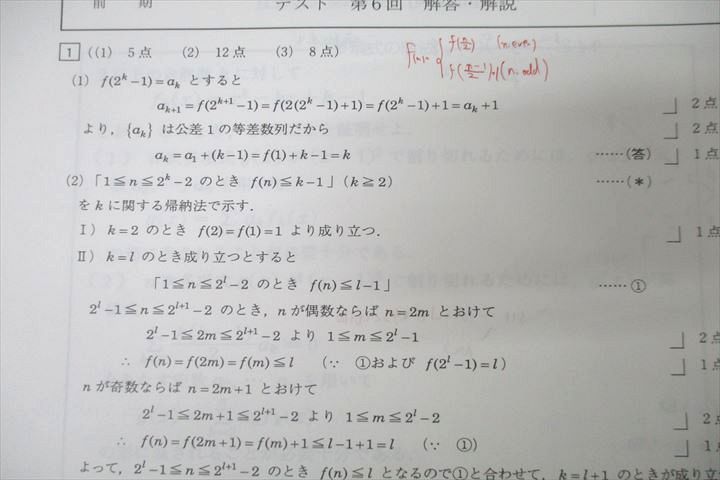 前 期
テスト 第6回 解答・解説
1 ((1) 5点 (2) 12点 (3) 8点)
f(n)= { f(n/2) (n:even)
f((n-1)/2)+1 (n:odd)
(1) f(2^k-1)=a_k とすると
a_{k+1}=f(2^{k+1}-1)=f(2(2^k-1)+1)=f(2^k-1)+1=a_k+1 2点
より, {a_k} は公差1の等差数列だから 2点
a_k=a_1+(k-1)=f(1)+k-1=k ……(答) 1点
(2) 「1≦n≦2^k-2 のとき f(n)≦k-1」(k≧2) ……(*)
をkに関する帰納法で示す.
Ⅰ) k=2 のとき f(2)=f(1)=1 より成り立つ. 1点
Ⅱ) k=l のとき成り立つとすると
「1≦n≦2^l-2 のとき f(n)≦l-1」 ……①
2^l-1≦n≦2^{l+1}-2 のとき, nが偶数ならば n=2m とおけて
2^l-1≦2m≦2^{l+1}-2 より 1≦m≦2^l-1 2点
∴ f(n)=f(2m)=f(m)≦l (∵ ①および f(2^l-1)=l) 1点
nが奇数ならば n=2m+1 とおけて
2^l-1≦2m+1≦2^{l+1}-2 より 1≦m≦2^l-2 2点
∴ f(n)=f(2m+1)=f(m)+1≦l-1+1=l (∵ ①) 1点
よって, 2^l-1≦n≦2^{l+1}-2 のとき f(n)≦l となるので①と合わせて, k=l+1 のときが成り立